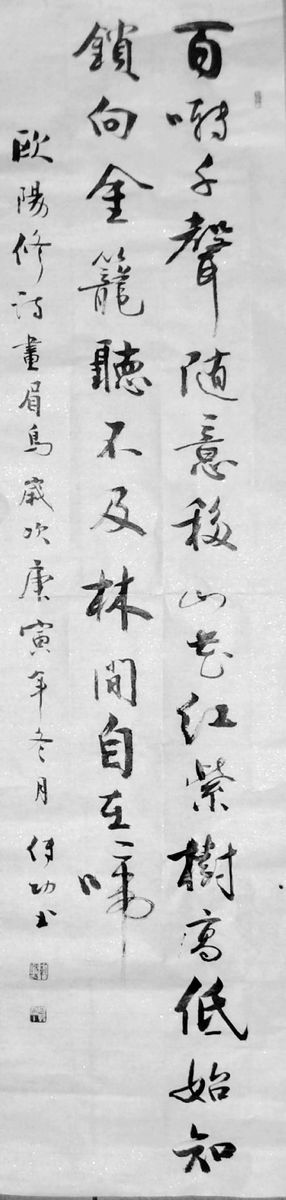 百囀千聲随意移山花红紫樹高低始知
鎖向金籠聽不及林間自在啼
歐陽修詩畫眉鳥歲次庚寅年冬月付功书